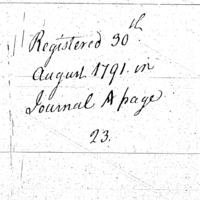 Registered 30th
August 1791. in
Journal A page
23.